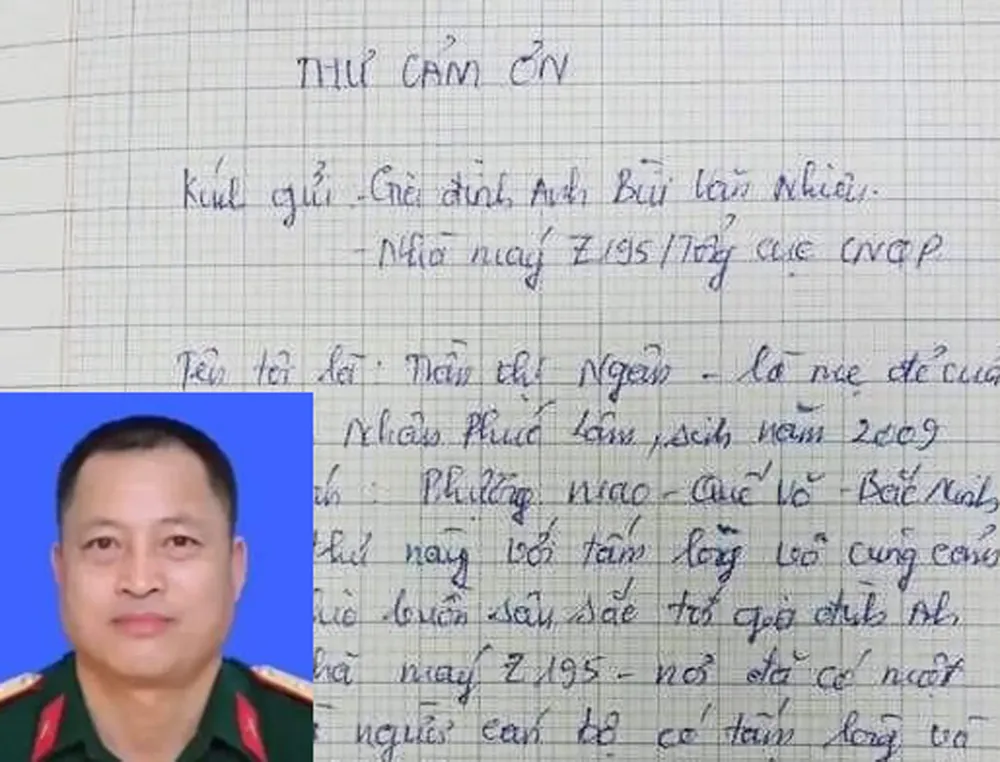 THƯ CẢM ƠN
Kính gửi - Gia đình Anh Bùi Văn Nhiên.
- Nhà máy Z195/Tổng cục CNQP.
Tên tôi là: Trần thị Ngân - là mẹ đẻ của
Nhân Phúc Lâm, sinh năm 2009
Phượng mao - Quế Võ - Bắc Ninh
thư này với tấm lòng vô cùng cảm
buồn sâu sắc tới gia đình Anh
nhà máy Z195 - nơi đã có một
người cán bộ có tấm lòng vô